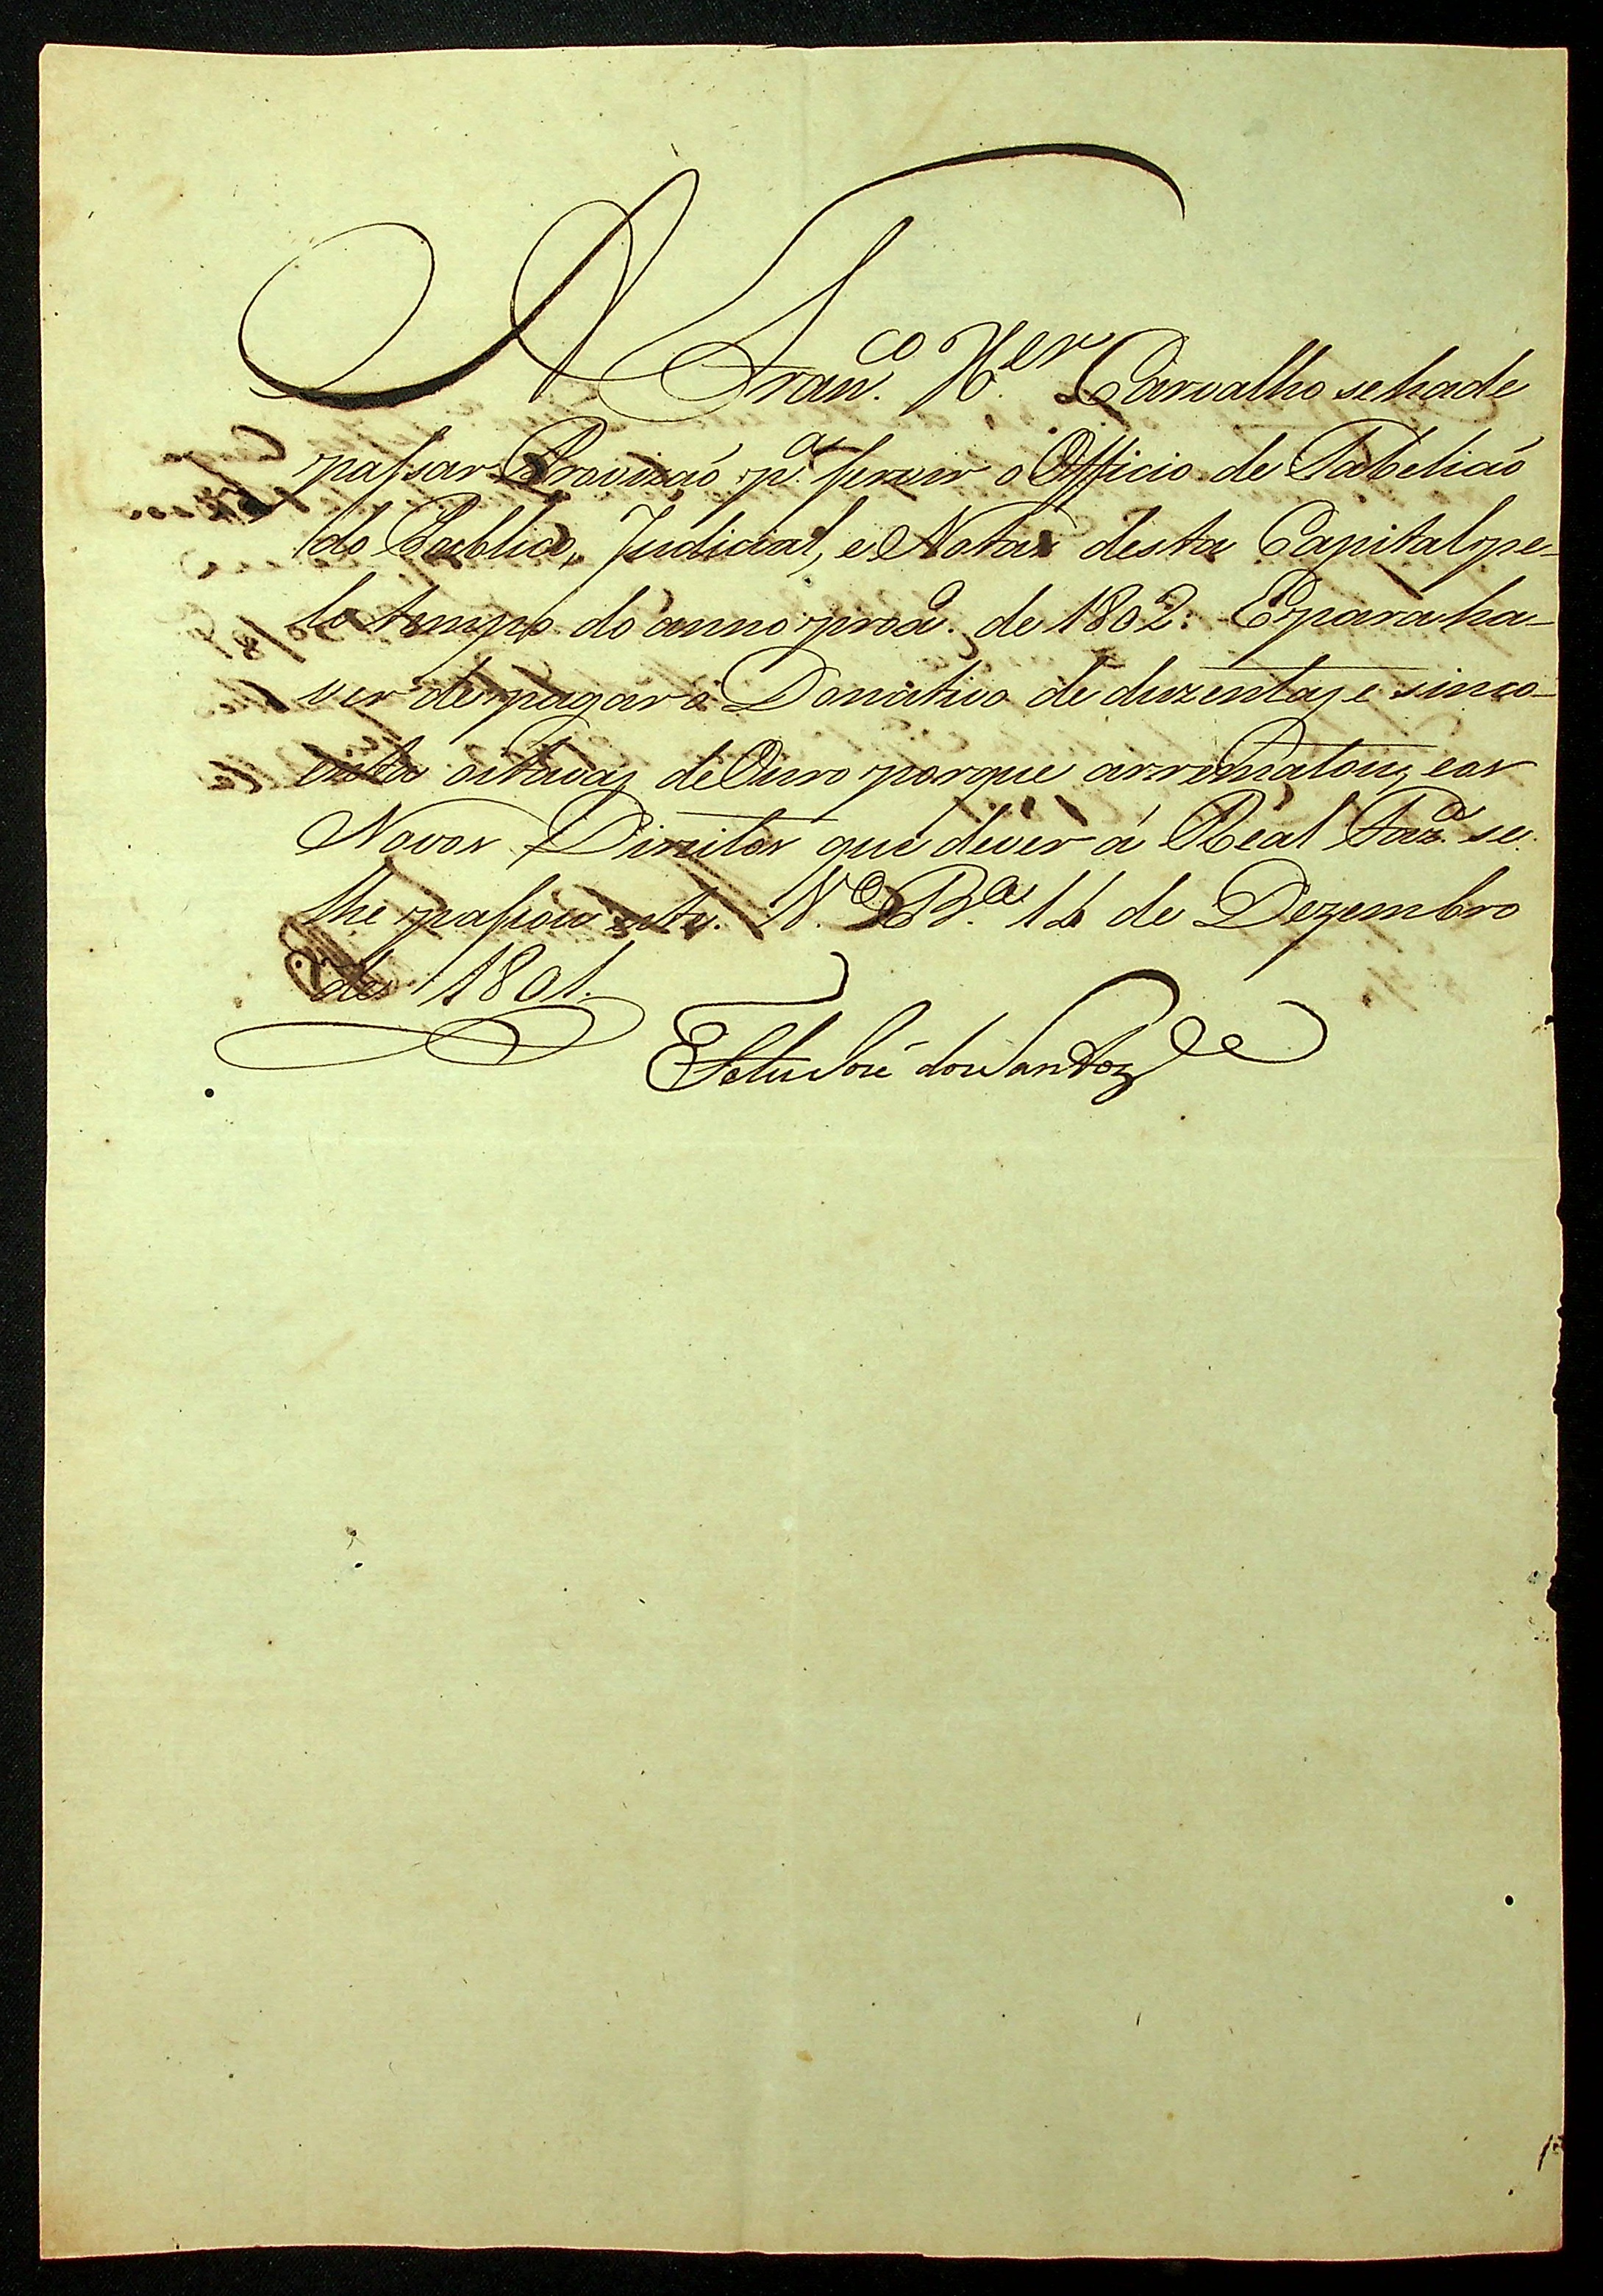 A Fran.co X.er Carvalho se hade
passar Provizaõ p.a servir o Officio de Tabeliaõ
do Publico, Judicial, e Notas desta Capital pe-
lo tempo do anno prox.o de 1802: E para ha-
ver de pagar o Donativo de duzentas e sinco-
enta oitavas de Ouro porque arrematou, e os
Novos Direitos que dever á Real Faz.a se
lhe passou este. V.a B.a 14 de Dezembro
de 1801.
José dos Santos